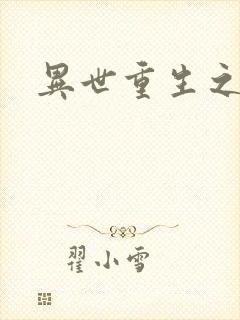 異世重生之
翟小雪